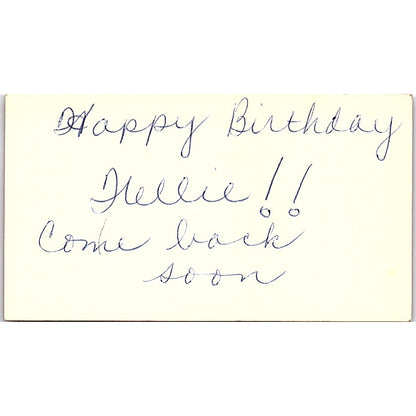 Happy Birthday
Nellie!!
Come back
soon